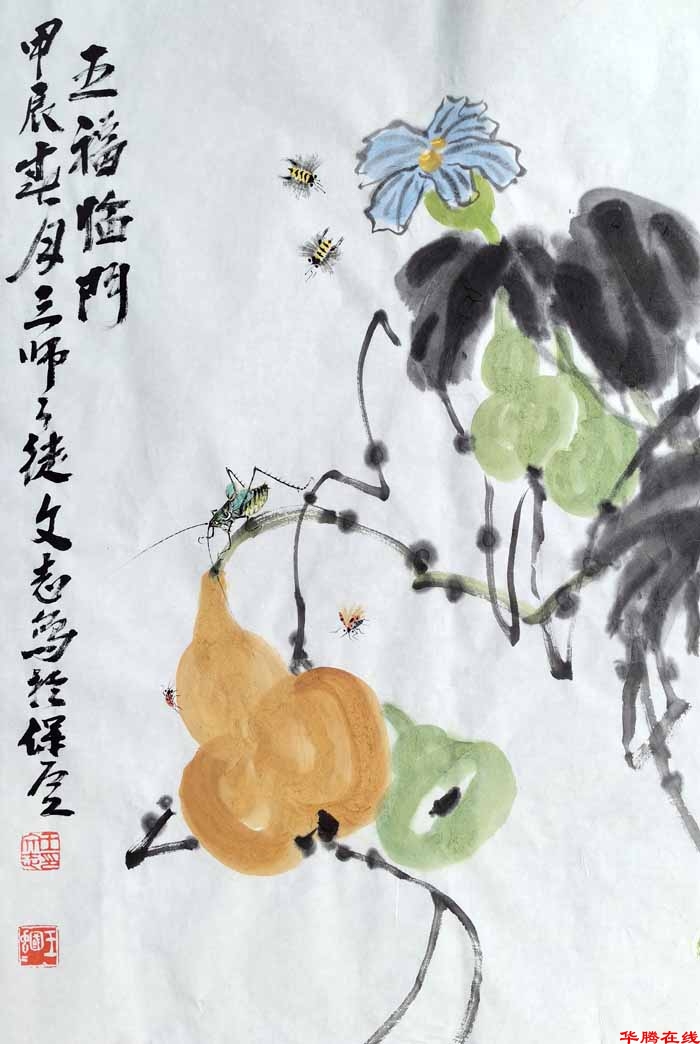 五福临门
甲辰春月三师之徒文志写於保定
华腾在线